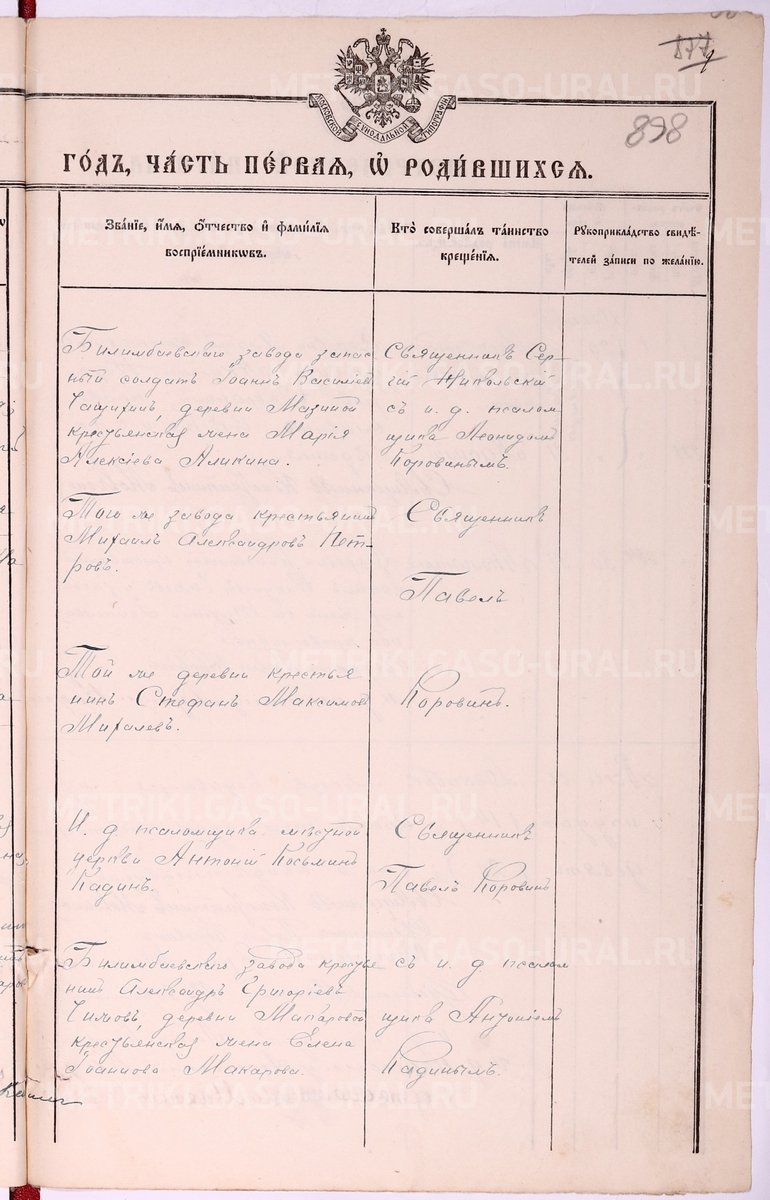 877
898
МОСКОВСКОЙ СѴНОДАЛЬНОЙ ТИПОГРАФІИ
ГО́ДЪ, ЧА́СТЬ ПЕ́РВАЯ, Ѽ РОДИ́ВШИХСЯ.
Зва́нїе, и́мѧ, ѻ҆́тчество и҆ фами́лїѧ
воспрїе́мникѡвъ.
Кто̀ соверша́лъ та́инство
креще́нїѧ.
Рꙋкоприкла́дство свидѣ́-
телей за́писи по жела́нїю.
Билимбаевскаго завода запас
ный солдатъ Іоаннъ Василіевъ
деревни Мазиной
крестьянская жена Марія
Алексіева Аликина.
Священникъ Сер-
гій Никольскій
съ и. д. псалом
щика Леонидомъ
Корованымъ.
Того же завода крестьянинъ
Михаилъ Александровъ Пет-
ровъ.
Священникъ
Павелъ
Той же деревни крестья
нинъ Стефанъ Максимовъ
Михалевъ.
Коровинъ.
И. д псаломщика мѣстной
церкви Антоній Косьминъ
Кадинъ.
Священникъ
Павелъ Коровинъ
Билимбаевскаго завода крестья
нинъ Александръ Григоріевъ
деревни Макаровой
крестьянская жена Елена
Іоаннова Макарова.
съ и. д. псалом
щика Антоніемъ
Кадинымъ.
METRIKI.GASO-URAL.RU